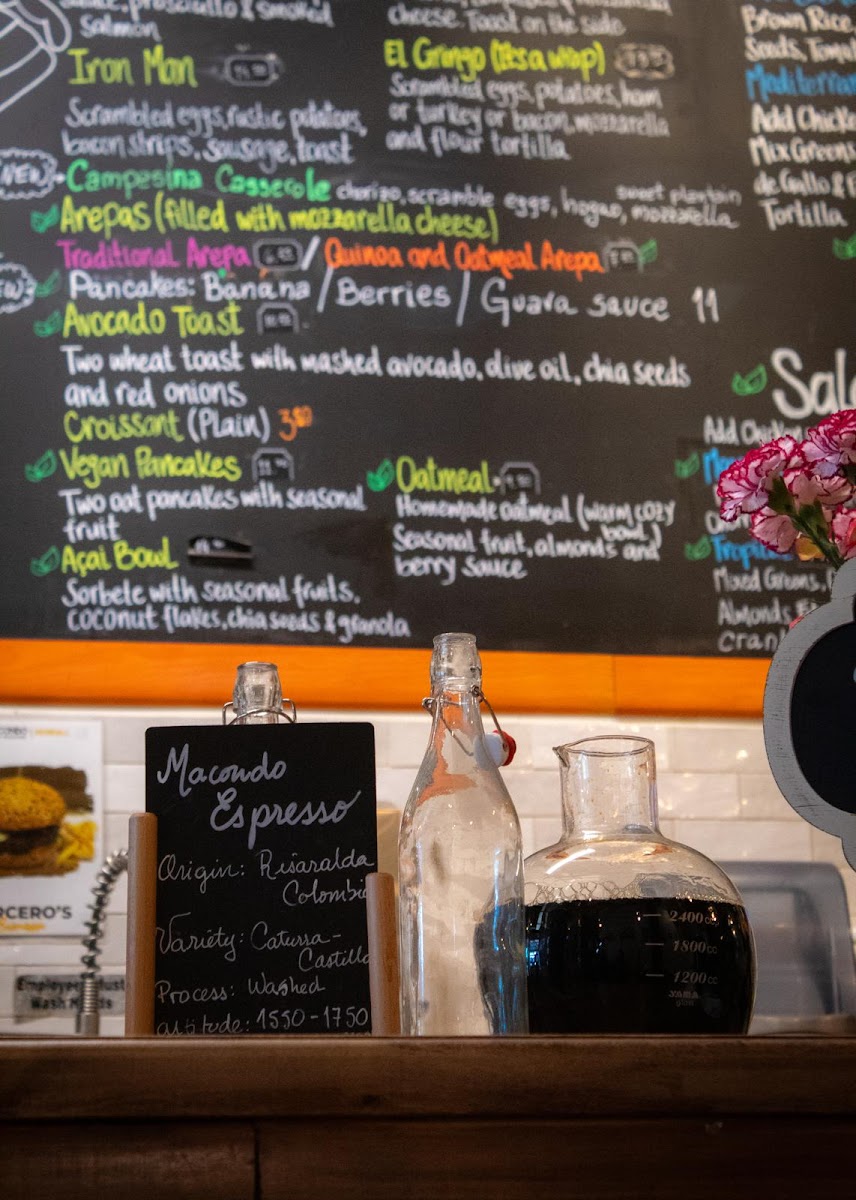 sauce, prosciutto & smoked
salmon
Iron Man
Scrambled eggs, rustic potatoes,
bacon strips, sausage, toast
cheese. Toast on the side
El Gringo (It's a wrap)
Scrambled eggs, potatoes, ham
or turkey or bacon, mozzarella
and flour tortilla
NEW Campesina Casserole chorizo, scramble eggs, hogao, sweet plantain
mozzarella
Arepas (filled with mozzarella cheese)
Traditional Arepa / Quinoa and Oatmeal Arepa
Pancakes: Banana / Berries / Guava sauce 11
Avocado Toast
Two wheat toast with mashed avocado, olive oil, chia seeds
and red onions
Croissant (Plain) 3.50
Vegan Pancakes
Two oat pancakes with seasonal
fruit
Açai Bowl
Sorbete with seasonal fruits,
coconut flakes, chia seeds & granola
Oatmeal
Homemade oatmeal (warm cozy
bowl)
Seasonal fruit, almonds and
berry sauce
Brown Rice,
Seeds,
Add Chicke
Mix Greens
de Gallo &
Tortilla
Add Chicken
Mixed Greens,
Almonds
Macondo
Espresso
Origin: Risaralda
Colombia
Variety: Caturra-
Castillo
Process: Washed
altitude: 1550-1750
2400cc
1800cc
1200cc
RCERO'S
Employees Must
Wash Hands